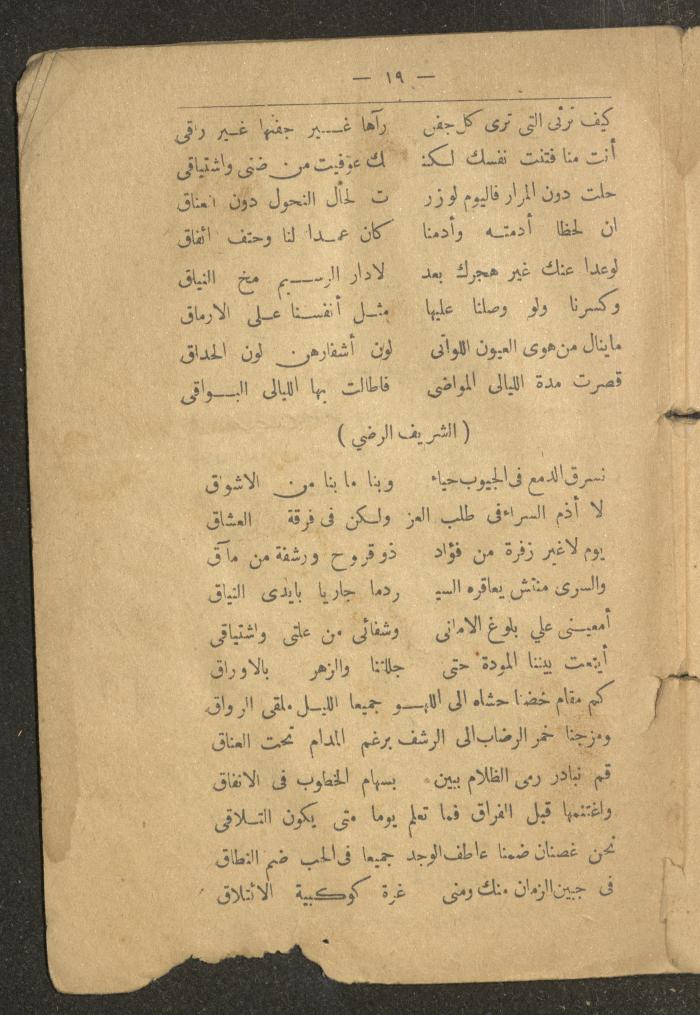 — ١٩ —
كيف ترثى التى ترى كل جفن رآها غــير جفنها غير راقى
أنت منا فتنت نفسك لكنـ ـك عوفيت من ضنى واشتياقى
حلت دون المزار فاليوم لو زر ت لحال النحول دون العناق
ان لحظا أدمته وأدمنا كان عمدا لنا وحتف اتفاق
لو عدا عنك غير هجرك بعد لأرار الرسيم مخ النياق
وكسرنا ولو وصلنا عليها مثل أنفسنا على الارماق
ما ينال من هوى العيون اللواتى لون أشفارهن لون الحداق
قصرت مدة الليالى المواضى فاطالت بها الليالى البواقى
( الشريف الرضي )
نسرق الدمع فى الجيوب حياء وبنا ما بنا من الاشواق
لا أذم السراء فى طلب العز ولكن فى فرقة العشاق
يوم لا غير زفرة من فؤاد ذو قروح ورشفة من مآق
والسرى منتش يعاقره السيـ ـر دما جاريا بايدى النياق
أمعينى علي بلوغ الامانى وشفائى من علتى واشتياقى
أينعت بيننا المودة حتى جللتنا والزهر بالاوراق
كم مقام خضنا حشاه الى اللهــو جميعا الليل ملقى الرواق
ومزجنا خمر الرضاب الى الرشف برغم المدام تحت العناق
قم نبادر رمى الظلام ببين بسهام الخطوب فى الاتفاق
واغتنمها قبل الفراق فما تعلم يوما متى يكون التلاقى
نحن غصنان ضمنا عاطف الوجد جميعا فى الحب ضم النطاق
فى جبين الزمان منك ومنى غرة كوكبية الائتلاق